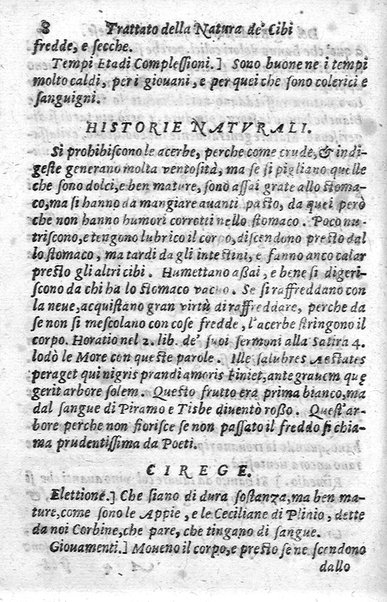 8 Trattato della Natura de' Cibi
fredde, e secche.
Tempi Etadi Complessioni.] Sono buone ne i tempi
molto caldi, per i giouani, e per quei che sono colerici e
sanguigni.
HISTORIE NATVRALI.
Si prohibiscono le acerbe, perche come crude, & indi-
geste generano molta ventosità, ma se si pigliano quelle
che sono dolci, e ben mature, sono assai grate allo stoma-
co, ma si hanno da mangiare auanti pasto, da quei però
che non hanno humori corrotti nello stomaco. Poco nu-
triscono, e tengono lubrico il corpo, discendono presto dal
lo stomaco, ma tardi da gli intestini, e fanno anco calar
presto gli altri cibi. Humettano assai, e bene si digeri-
scono da chi ha lo stomaco vacuo. Se si raffreddano con
la neue, acquistano gran virtù di raffreddare, perche da
se non si mescolano con cose fredde, l'acerbe stringono il
corpo. Horatio nel 2. lib. de' suoi sermoni alla Satira 4.
lodò le More con queste parole. Ille salubres Aestates
peraget qui nigris prandia moris Finiet, ante grauem quę
gerit arbore solem. Questo frutto era prima bianco, ma
dal sangue di Piramo e Tisbe diuentò rosso. Quest'ar-
bore perche non fiorisce se non passato il freddo si chia-
ma prudentissima da Poeti.
CIREGE.
Elettione.] Che siano di dura sostanza, ma ben ma-
ture, come sono le Appie, e le Ceciliane di Plinio, dette
da noi Corbine, che pare, che tingano di sangue.
Giouamenti.] Moueno il corpo, e presto se ne scendono
dallo